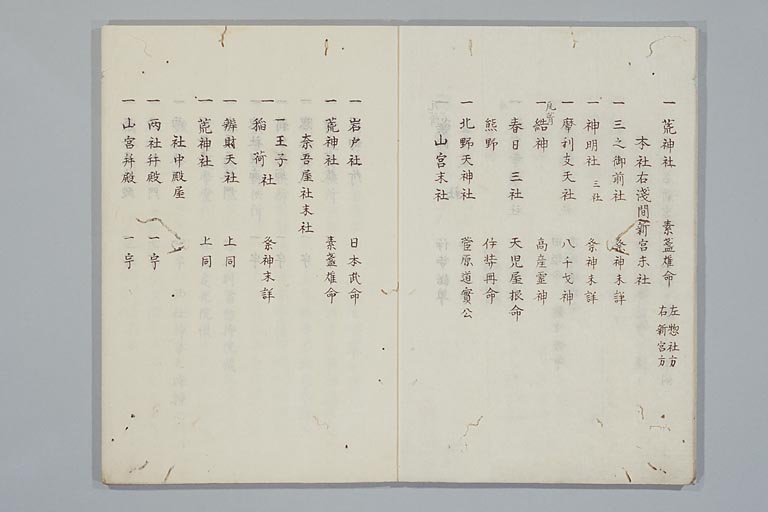 一 荒神社 素盞雄命 左惣社方
右新宮方
本社右淺間新宮末社
一 三之御前社 祭神未詳
一 神明社 三社 祭神未詳
一 摩利支天社 八千戈神
一 結神 高産霊神
一 春日 三社 天児屋根命
熊野 伊弉冊命
一 北野天神社 菅原道實公
一 山宮末社
一 岩戸社 日本武命
一 荒神社 素盞雄命
奈吾屋社末社
一 一王子
一 稲荷社 祭神未詳
一 辨財天社 上同
一 荒神社 上同
社中殿屋
一 两社幷殿 一宇
一 山宮拜殿 一宇